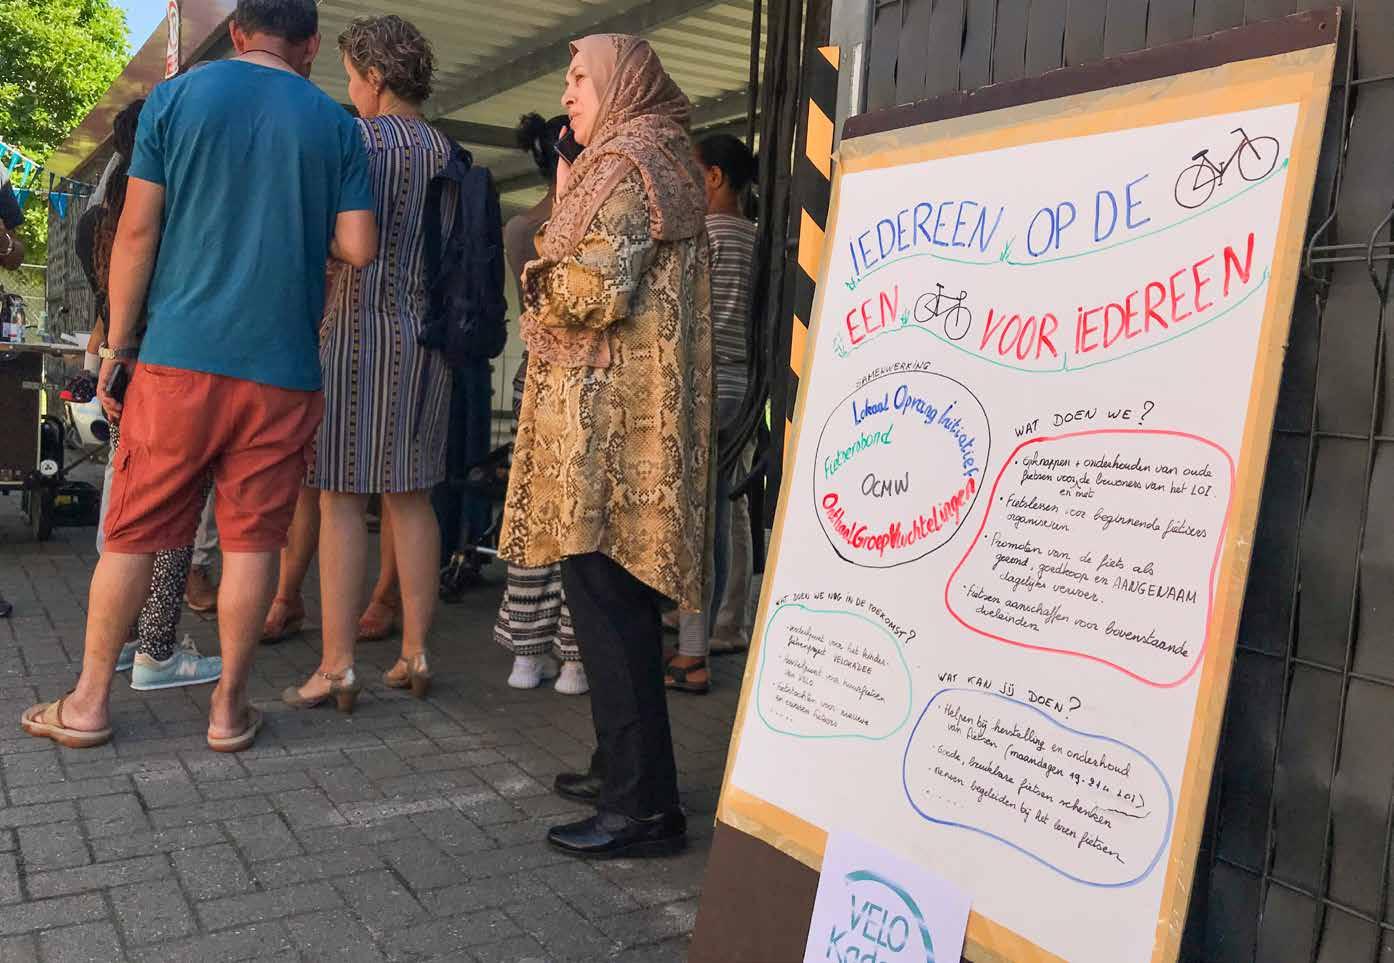 IEDEREEN OP DE
EEN VOOR IEDEREEN
SAMENWERKING
Lokaal Opvang Initiatief
Fietsersbond
OCMW
OnthaalGroepVluchteLingen
WAT DOEN WE?
• Opknappen + onderhouden van oude
fietsen voor de bewoners van het LOI.
en met
• Fietslessen voor beginnende fietsers
organiseren
• Promoten van de fiets als
gezond, goedkoop en AANGENAAM
dagelijks vervoer.
• Fietsen aanschaffen voor bovenstaande
doeleinden
WAT DOEN WE NOG IN DE TOEKOMST?
• onderdelen voor het kinder-
fietsenproject VELOKADEE
• voor huurfietsen
van VELO
• Fietstochten voor nieuwe
en ervaren fietsers
.....
WAT KAN JIJ DOEN?
• Helpen bij herstelling en onderhoud
van fietsen (maandagen 19-21u LOI)
• Goede, bruikbare fietsen schenken
• Mensen begeleiden bij het leren fietsen
.....
VELO
Kade